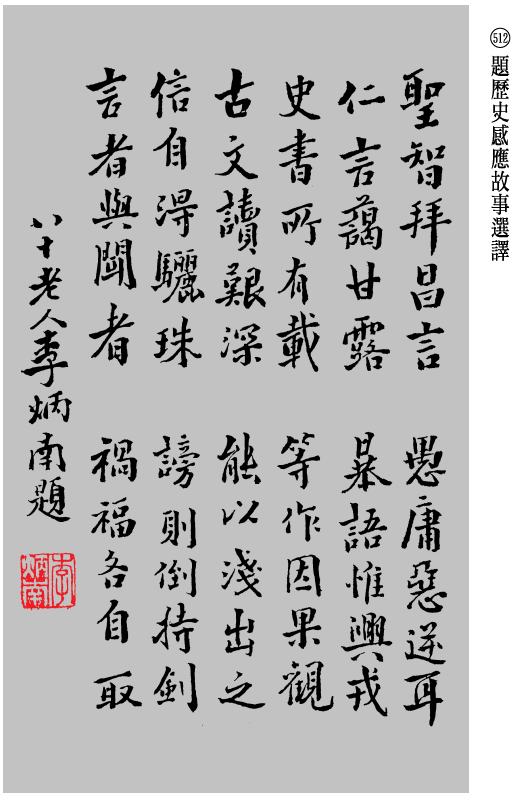 512 題歷史感應故事選譯
聖智拜昌言 愚庸惡逆耳
仁言藹甘露 暴語惟興戎
史書所有載 等作因果觀
古文讀艱深 能以淺出之
信自得驪珠 謗則倒持劍
言者與聞者 禍福各自取
八十老人李炳南題
李炳南